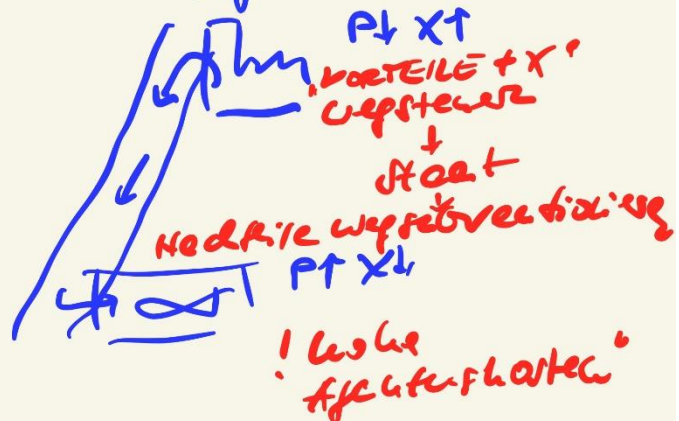 P↓ X↑
"VORTEILE + X"
wegsteuern
↓
Staat
↓
Nachteile wegsubventionieren
P↑ X↓
! hohe
Agenturkosten"